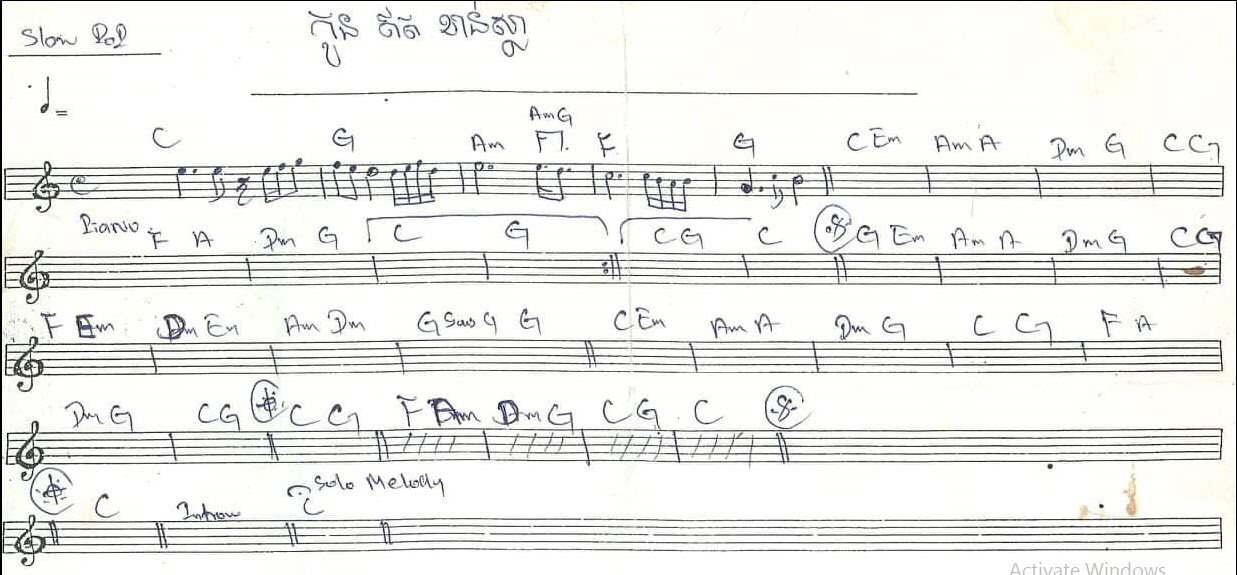 Slow Pop
កូន ឥត ខាន់ស្លា
C G Am Am G F F G C Em Am A Dm G C G
Piano F A Dm G C G C G C G Em Am A Dm G C G
F Em Dm Em Am Dm G Sus 4 G C Em Am A Dm G C G F A
Dm G C G C G F Em Dm G C G C
C Intro Solo Melody
Activate Windows